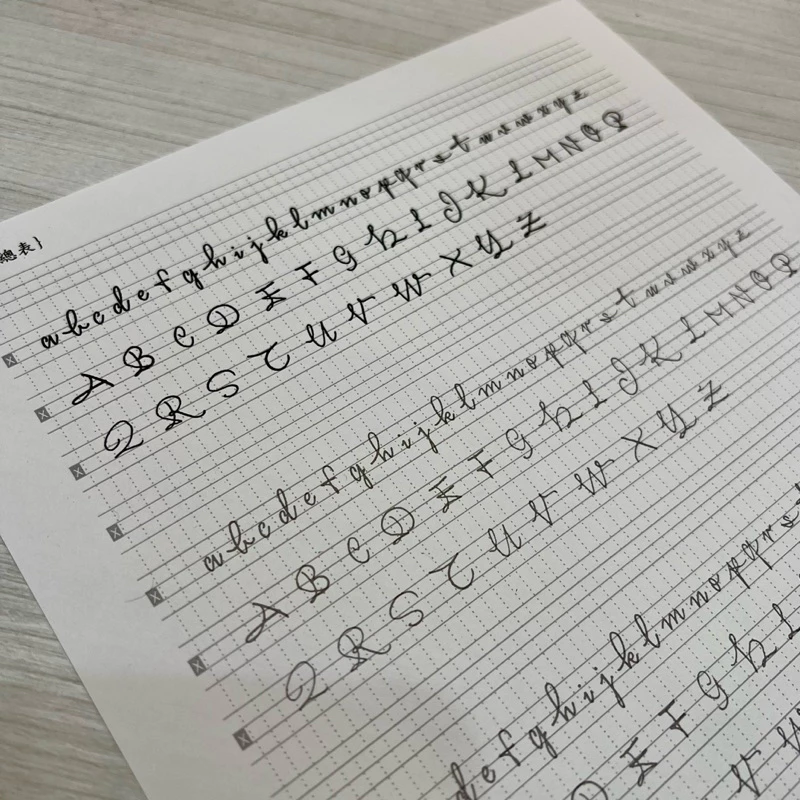 總表}
a b c d e f g h i j k l m n o p q r s t u v w x y z
A B C D E F G H I J K L M N O P
Q R S T U V W X Y Z
a b c d e f g h i j k l m n o p q r s t u v w x y z
A B C D E F G H I J K L M N O P
Q R S T U V W X Y Z
d e f g h i j k l m n o p q r s t
D E F G H I
V W